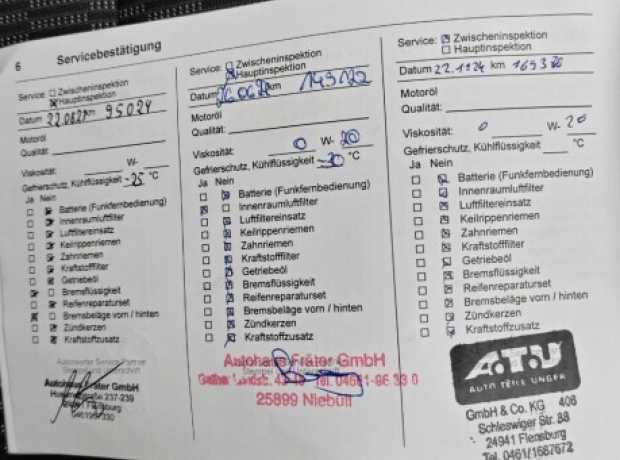 6 Servicebestätigung
Service: Zwischeninspektion
Hauptinspektion
Datum 22.0821 km 95024
Motoröl
Qualität:
Viskosität: W-
Gefrierschutz, Kühlflüssigkeit -25 °C
Ja Nein
Batterie (Funkfernbedienung)
Innenraumluftfilter
Luftfiltereinsatz
Keilrippenriemen
Zahnriemen
Kraftstofffilter
Getriebeöl
Bremsflüssigkeit
Reifenreparaturset
Bremsbeläge vorn / hinten
Zündkerzen
Kraftstoffzusatz
Autorisierter Service Partner
Autohaus Fräter GmbH
237-239
Flensburg
Service: Zwischeninspektion
Hauptinspektion
Datum km 149122
Motoröl
Qualität:
Viskosität: 0 W- 20
Gefrierschutz, Kühlflüssigkeit -20 °C
Ja Nein
Batterie (Funkfernbedienung)
Innenraumluftfilter
Luftfiltereinsatz
Keilrippenriemen
Zahnriemen
Kraftstofffilter
Getriebeöl
Bremsflüssigkeit
Reifenreparaturset
Bremsbeläge vorn / hinten
Zündkerzen
Kraftstoffzusatz
Autohaus Fräter GmbH
Tel. 04661-96 33 0
25899 Niebüll
Service: Zwischeninspektion
Hauptinspektion
Datum 22.1124 km
Motoröl
Qualität:
Viskosität: 0 W- 20
Gefrierschutz, Kühlflüssigkeit °C
Ja Nein
Batterie (Funkfernbedienung)
Innenraumluftfilter
Luftfiltereinsatz
Keilrippenriemen
Zahnriemen
Kraftstofffilter
Getriebeöl
Bremsflüssigkeit
Reifenreparaturset
Bremsbeläge vorn / hinten
Zündkerzen
Kraftstoffzusatz
A.T.U
AUTO TEILE UNGER
GmbH & Co. KG 406
Schleswiger Str. 88
24941 Flensburg
Tel. 0461/1687672